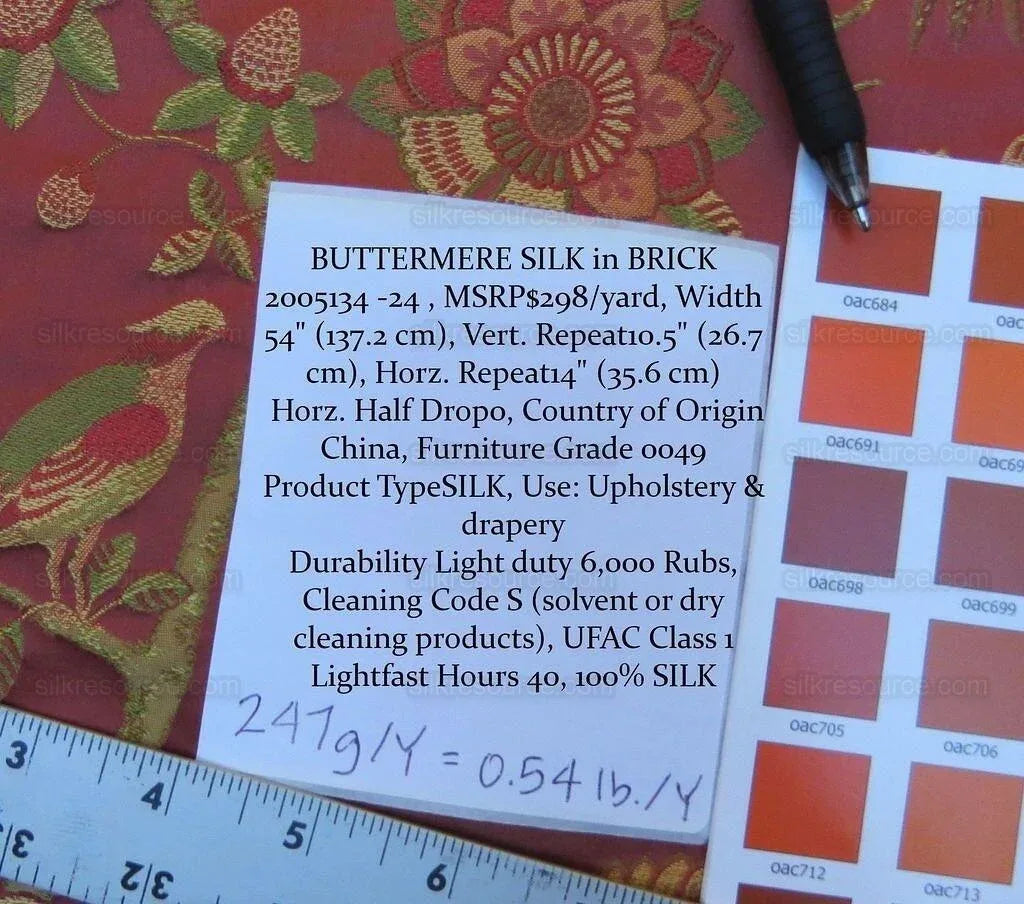 BUTTERMERE SILK in BRICK
2005134 -24 , MSRP$298/yard, Width
54" (137.2 cm), Vert. Repeat10.5" (26.7
cm), Horz. Repeat14" (35.6 cm)
Horz. Half Dropo, Country of Origin
China, Furniture Grade 0049
Product TypeSILK, Use: Upholstery &
drapery
Durability Light duty 6,000 Rubs,
Cleaning Code S (solvent or dry
cleaning products), UFAC Class 1
Lightfast Hours 40, 100% SILK
247g/Y = 0.54 lb./Y
oac684
oac691
oac698
oac699
oac705
oac706
oac712
oac713
3
4
5
6
silkresource.com